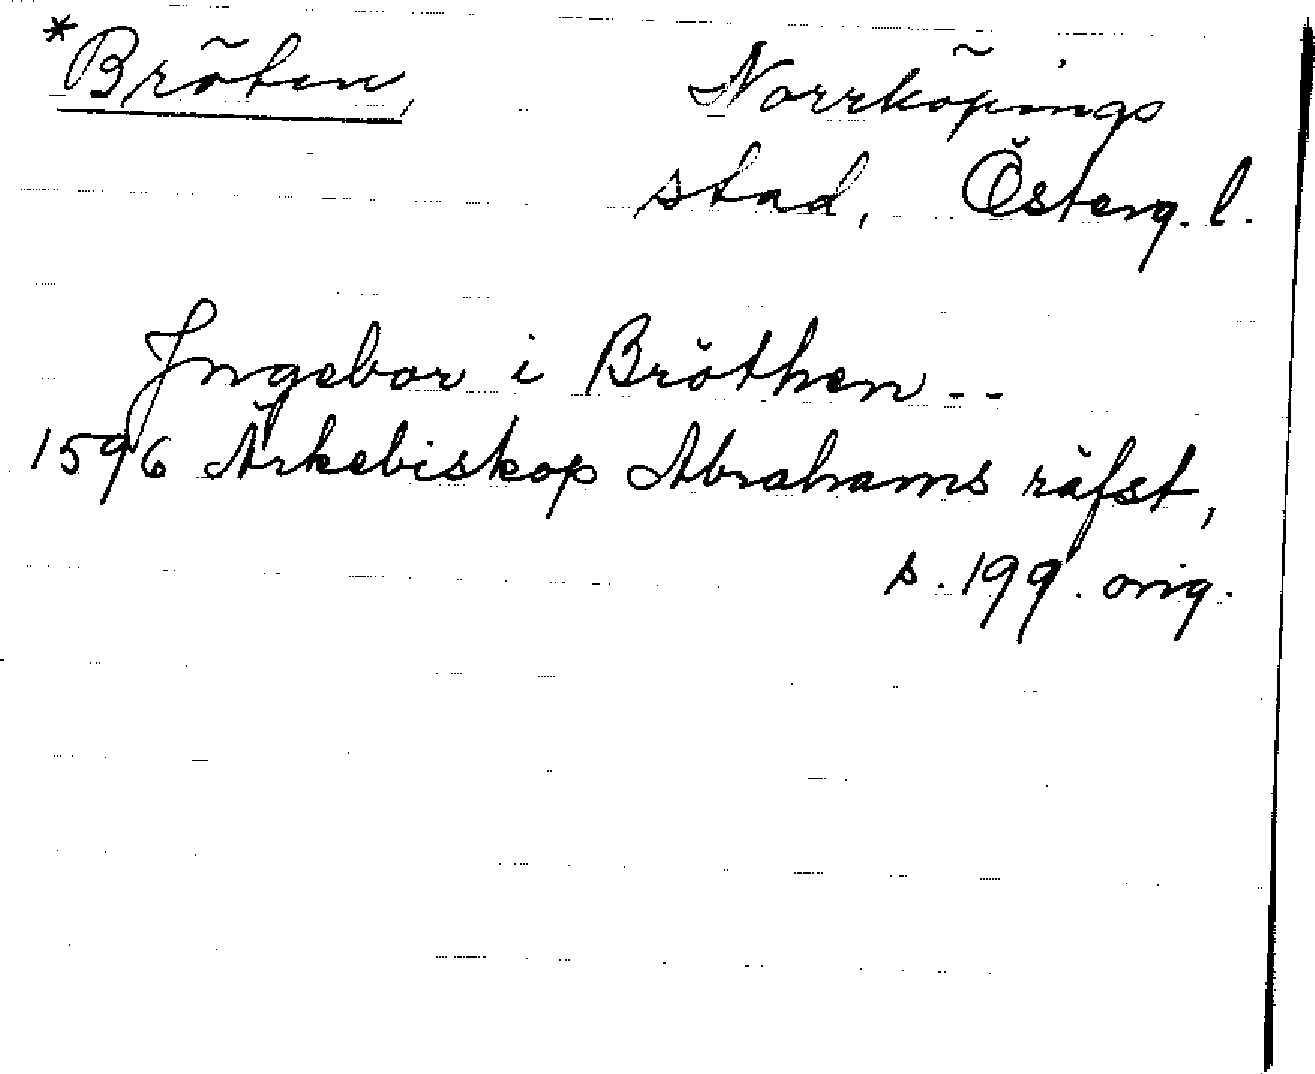 *Bröten, Norrköpings
stad, Österg. l.
Ingebor i Bröthen --
1596 Ärkebiskop Abrahams räfst,
s. 199. orig.